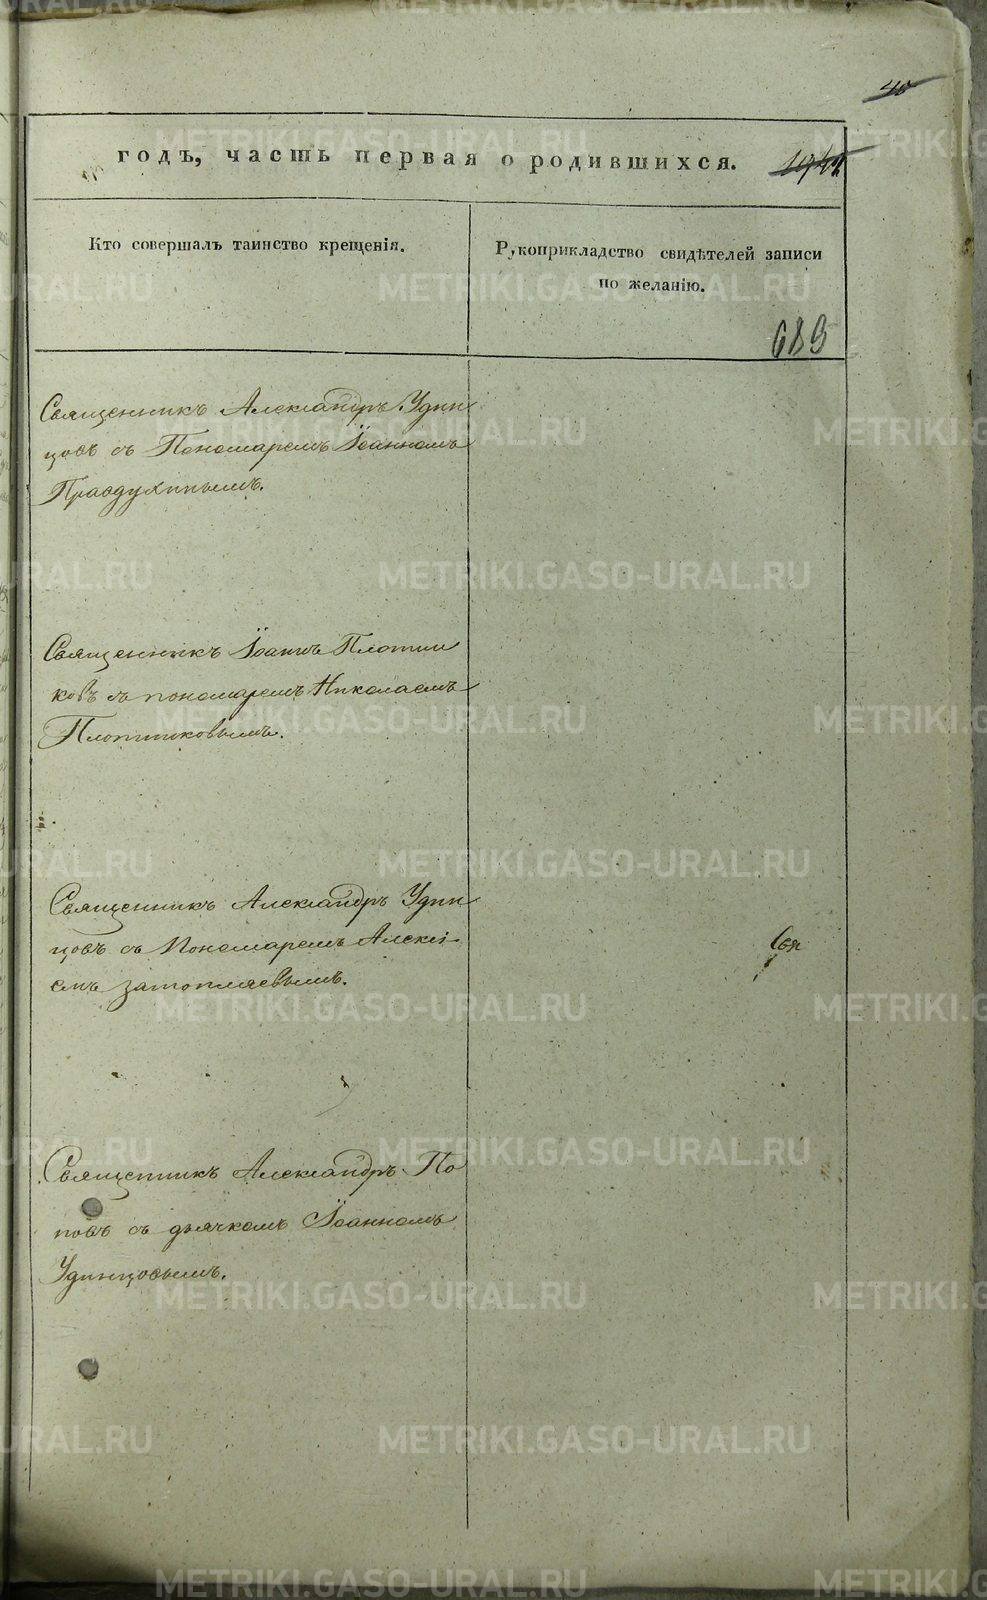 40
годъ, часть первая о родившихся.
Кто совершалъ таинство крещенія.
Рукоприкладство свидѣтелей записи
по желанію.
689
Священникъ Александръ Удин
цовъ съ Пономаремъ Іоанномъ
Правдухинымъ.
Священникъ Іоаннъ Плотни
ковъ съ пономаремъ Николаемъ
Плотниковымъ.
Священникъ Александръ Удин
цовъ съ Пономаремъ Алексі
емъ Затопляевымъ.
Священникъ Александръ По
повъ съ дьячкомъ Іоанномъ
Удинцовымъ.
METRIKI.GASO-URAL.RU